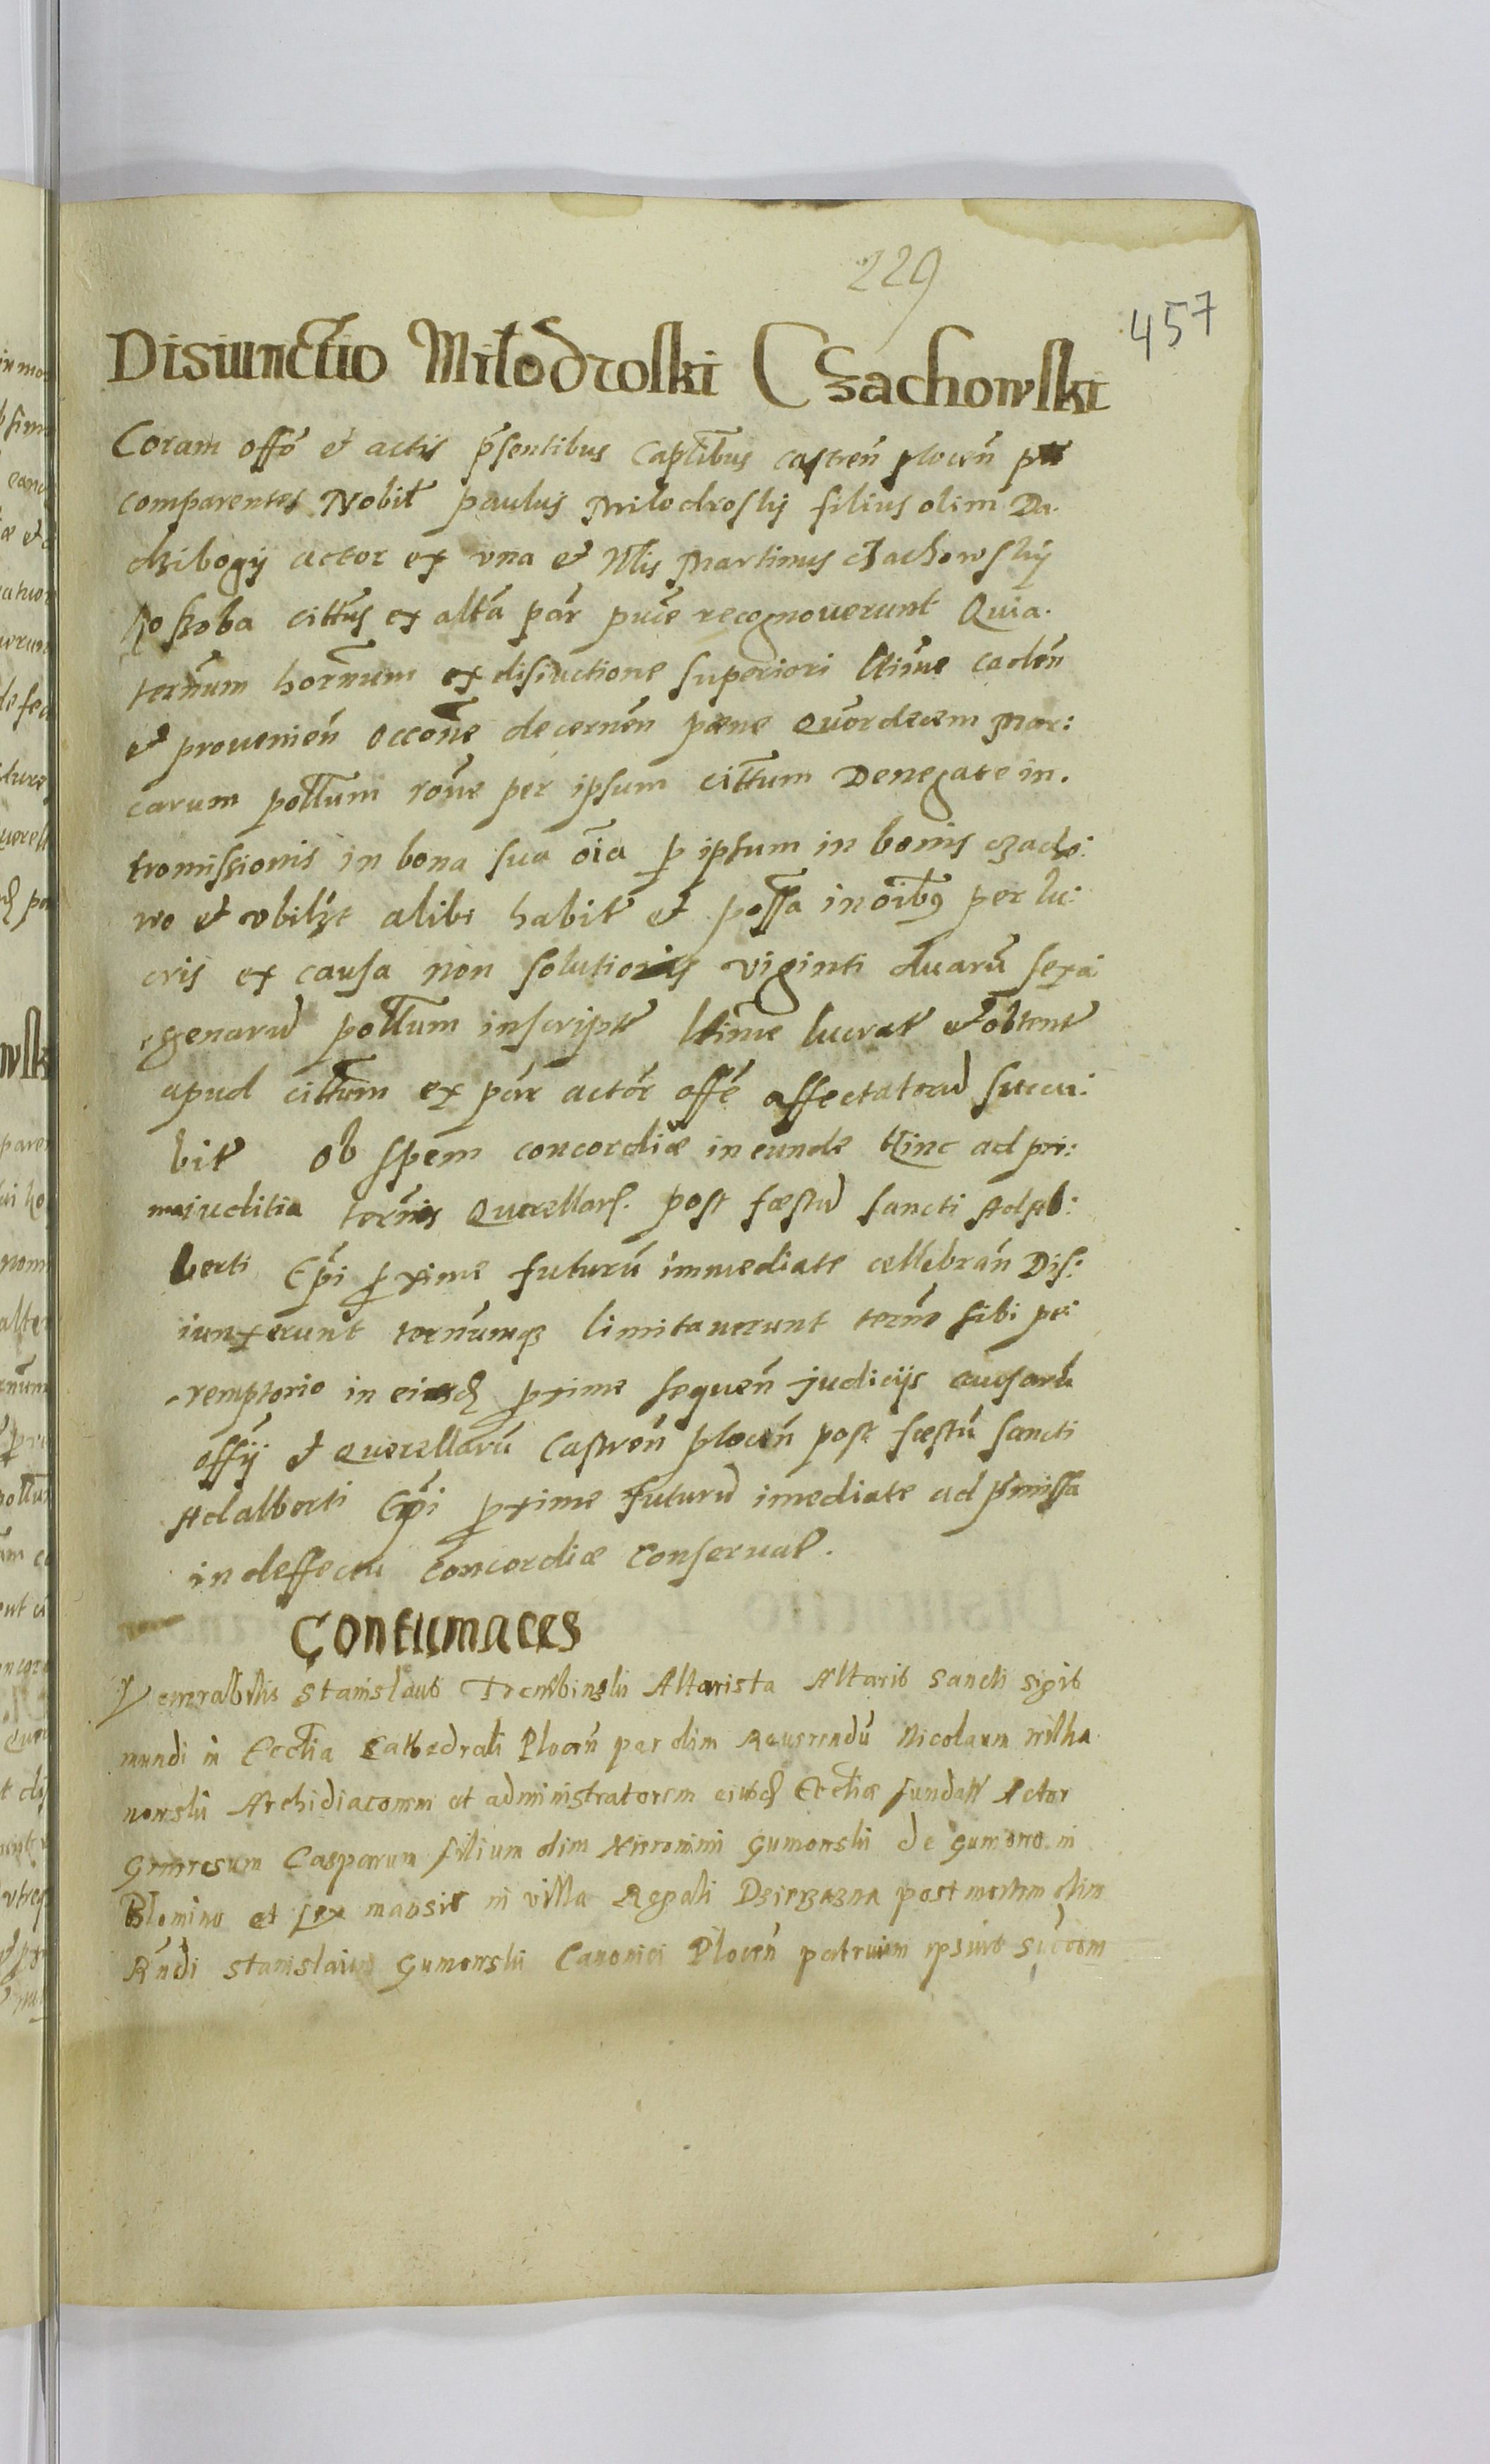 229
457
Disiunctio Miłodroski Czachowski
Coram offõ et actis p̃sentibus Captĩbus castreñ plocen̄
comparentes Nobił paulus Milodrosky filius olim Da.
dzibogij actor ex vna et Nłis Martinus czachowskij
Koszoba cittũs ex altã pãr pũce recognouerunt Quia.
terñum horñum ex disiũctione superiori ltĩme cadeñ
et prouenieñ occõne decerneñ pæne quõrdecem Mar:
carum połłum rõne per ipsum cittũm Denegate in.
tromissionis in bona sua oĩa ꝑ ipsum in bonis czacho:
wo et vbilꝫt alibi habit et possã in oĩbꝰ per lu:
cris ex causa non solutionis viginti duarũ sexa
genarũ połłum inscript ltĩme lucrat et obtent
apud cittũm ex pãr actõr offẽ affectatorũ succu:
bit ob spem concordiæ ineunde hinc ad pri:
ma iuditia terñis querellarũ. post fæstũ sancti Adal:
berti Epĩ ꝓxime futurũ immediate cellebrañ Dis:
iunxerunt terñumqꝫ limitauerunt terñ sibi pe:
remptorio in eisdꝫ ꝓxime sequeñ judicijs causarũ
offij et querellarũ Castreñ ploceñ post fæstũ sancti
Adalberti Epĩ ꝓxime futurũ imediate ad p̃missa
in deffectu concordiæ conseruał.
Contumaces
Venerabilis Stanislaus Trembinski Altarista Altaris Sancti Sigis
mundi in Ecctia Cathedrali Ploceñ per olim Reuerendũ Nicolaum wilka
nowski Archidiaconum et administratorem eiusdꝫ Ecctiæ fundatt Actor
Generosum Casparum filium olim Hieronimi Gumowski de Gumowo in
Blomino et sex mansis in villa Regali Dzierzazna post mortem olim
Rñdi Stanislaum Gumowski Canonici Ploceñ patruum ipsius